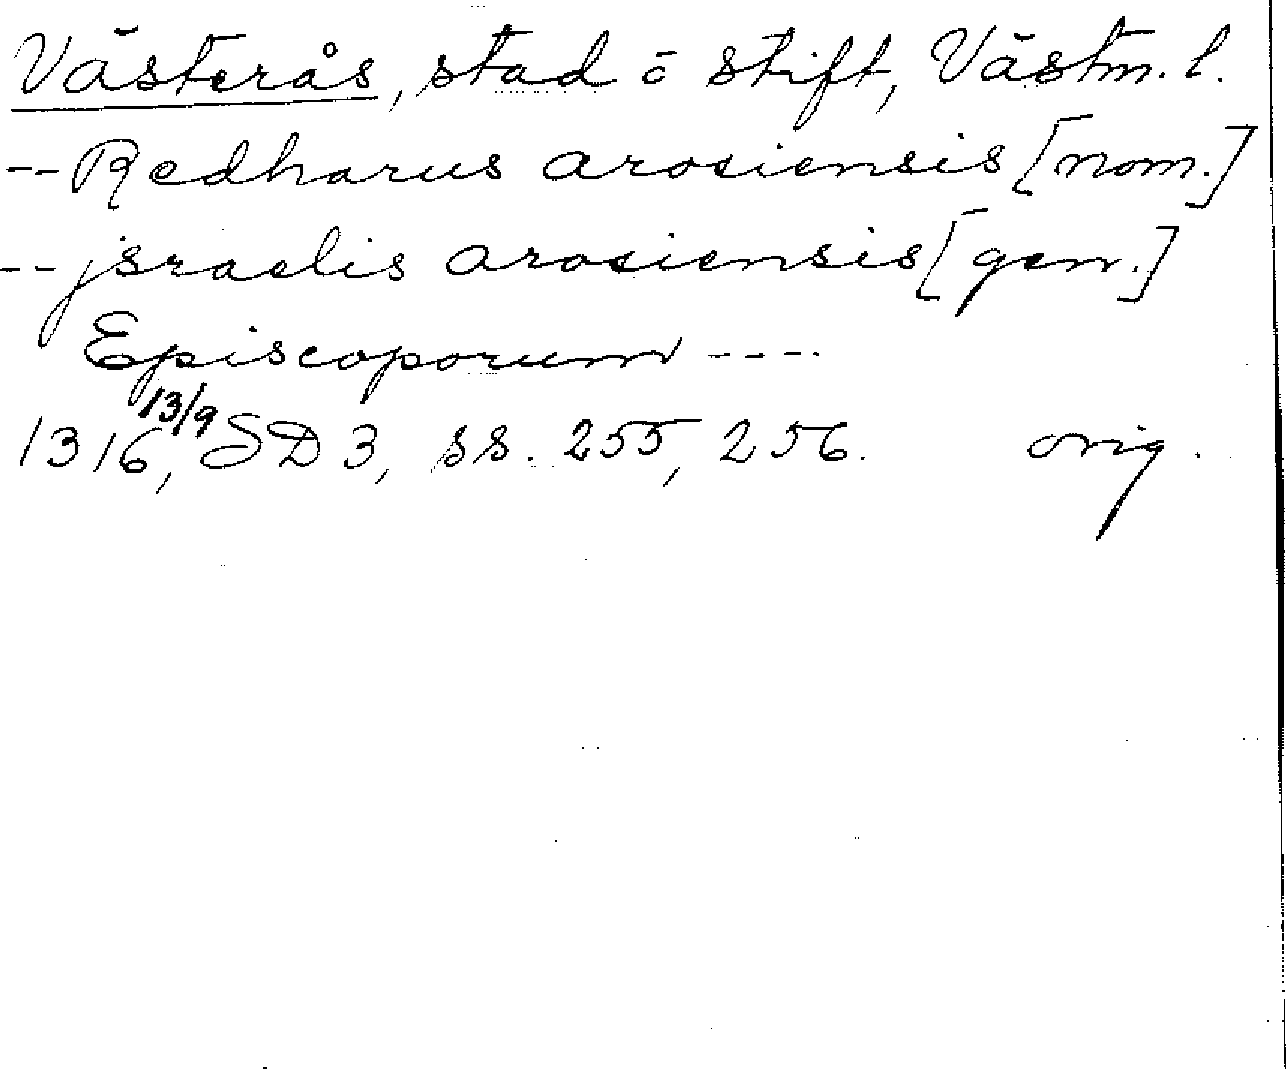 Västerås, stad o stift, Västm. l.
-- Redharus arosiensis [nom.]
-- jsraelis arosiensis [gen.]
Episcoporum ----
13/9
1316, SD 3, ss. 255, 256. orig.